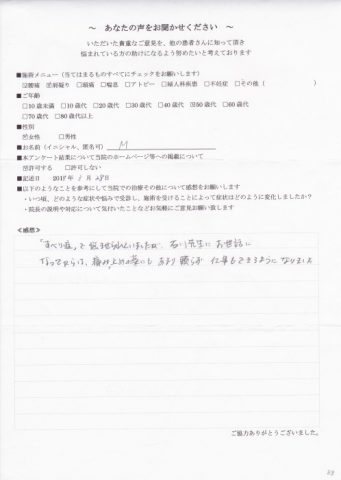 ～ あなたの声をお聞かせください ～
いただいた貴重なご意見を、他の患者さんに知って頂き
悩まれている方の助けになるよう努めたいと考えております
■施術メニュー（当てはまるものすべてにチェックをお願いします）
☑腰痛 ☑肩凝り □頭痛 □喘息 □アトピー □婦人科疾患 □不妊症 □その他（ ）
■ご年齢
□10歳未満 □10歳代 □20歳代 □30歳代 □40歳代 ☑50歳代 □60歳代
□70歳代 □80歳代以上
■性別
☑女性 □男性
■お名前（イニシャル、匿名可） M
■本アンケート結果について当院のホームページ等への掲載について
☑許可する □許可しない
■記述日 年 月 28日
■以下のようなことを参考にして当院での治療その他について感想をお願いします
・いつ頃、どのような症状や悩みで受診し、施術を受けることによって症状はどのように変化しましたか？
・院長の説明や対応について気付いたことなどお気軽にご意見お願い致します
≪感想≫
「すべり症」で 先生に お世話に
なってからは、痛み止めの薬にも あまり 頼らず 仕事もできるように なりました
ご協力ありがとうございました。